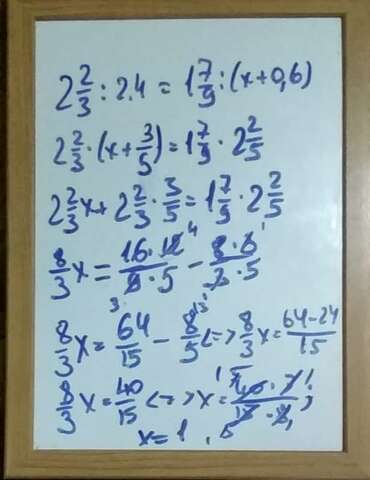 2 2/3 : 2.4 = 1 7/9 : (x + 0,6)
2 2/3 · (x + 3/5) = 1 7/9 · 2 2/5
2 2/3 x + 2 2/3 · 3/5 = 1 7/9 · 2 2/5
8/3 x = 16 · 12 4 / 9 3 · 5 − 8 · 3 1 / 3 · 5
8/3 x = 64/15 − 8/5 <=> 8/3 x = 64 − 24 / 15
8/3 x = 40/15 <=> x =
x = 1